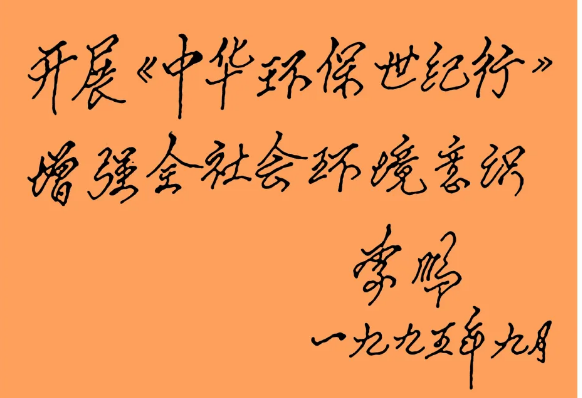 开展《中华环保世纪行》
增强全社会环境意识
李鹏
一九九五年九月